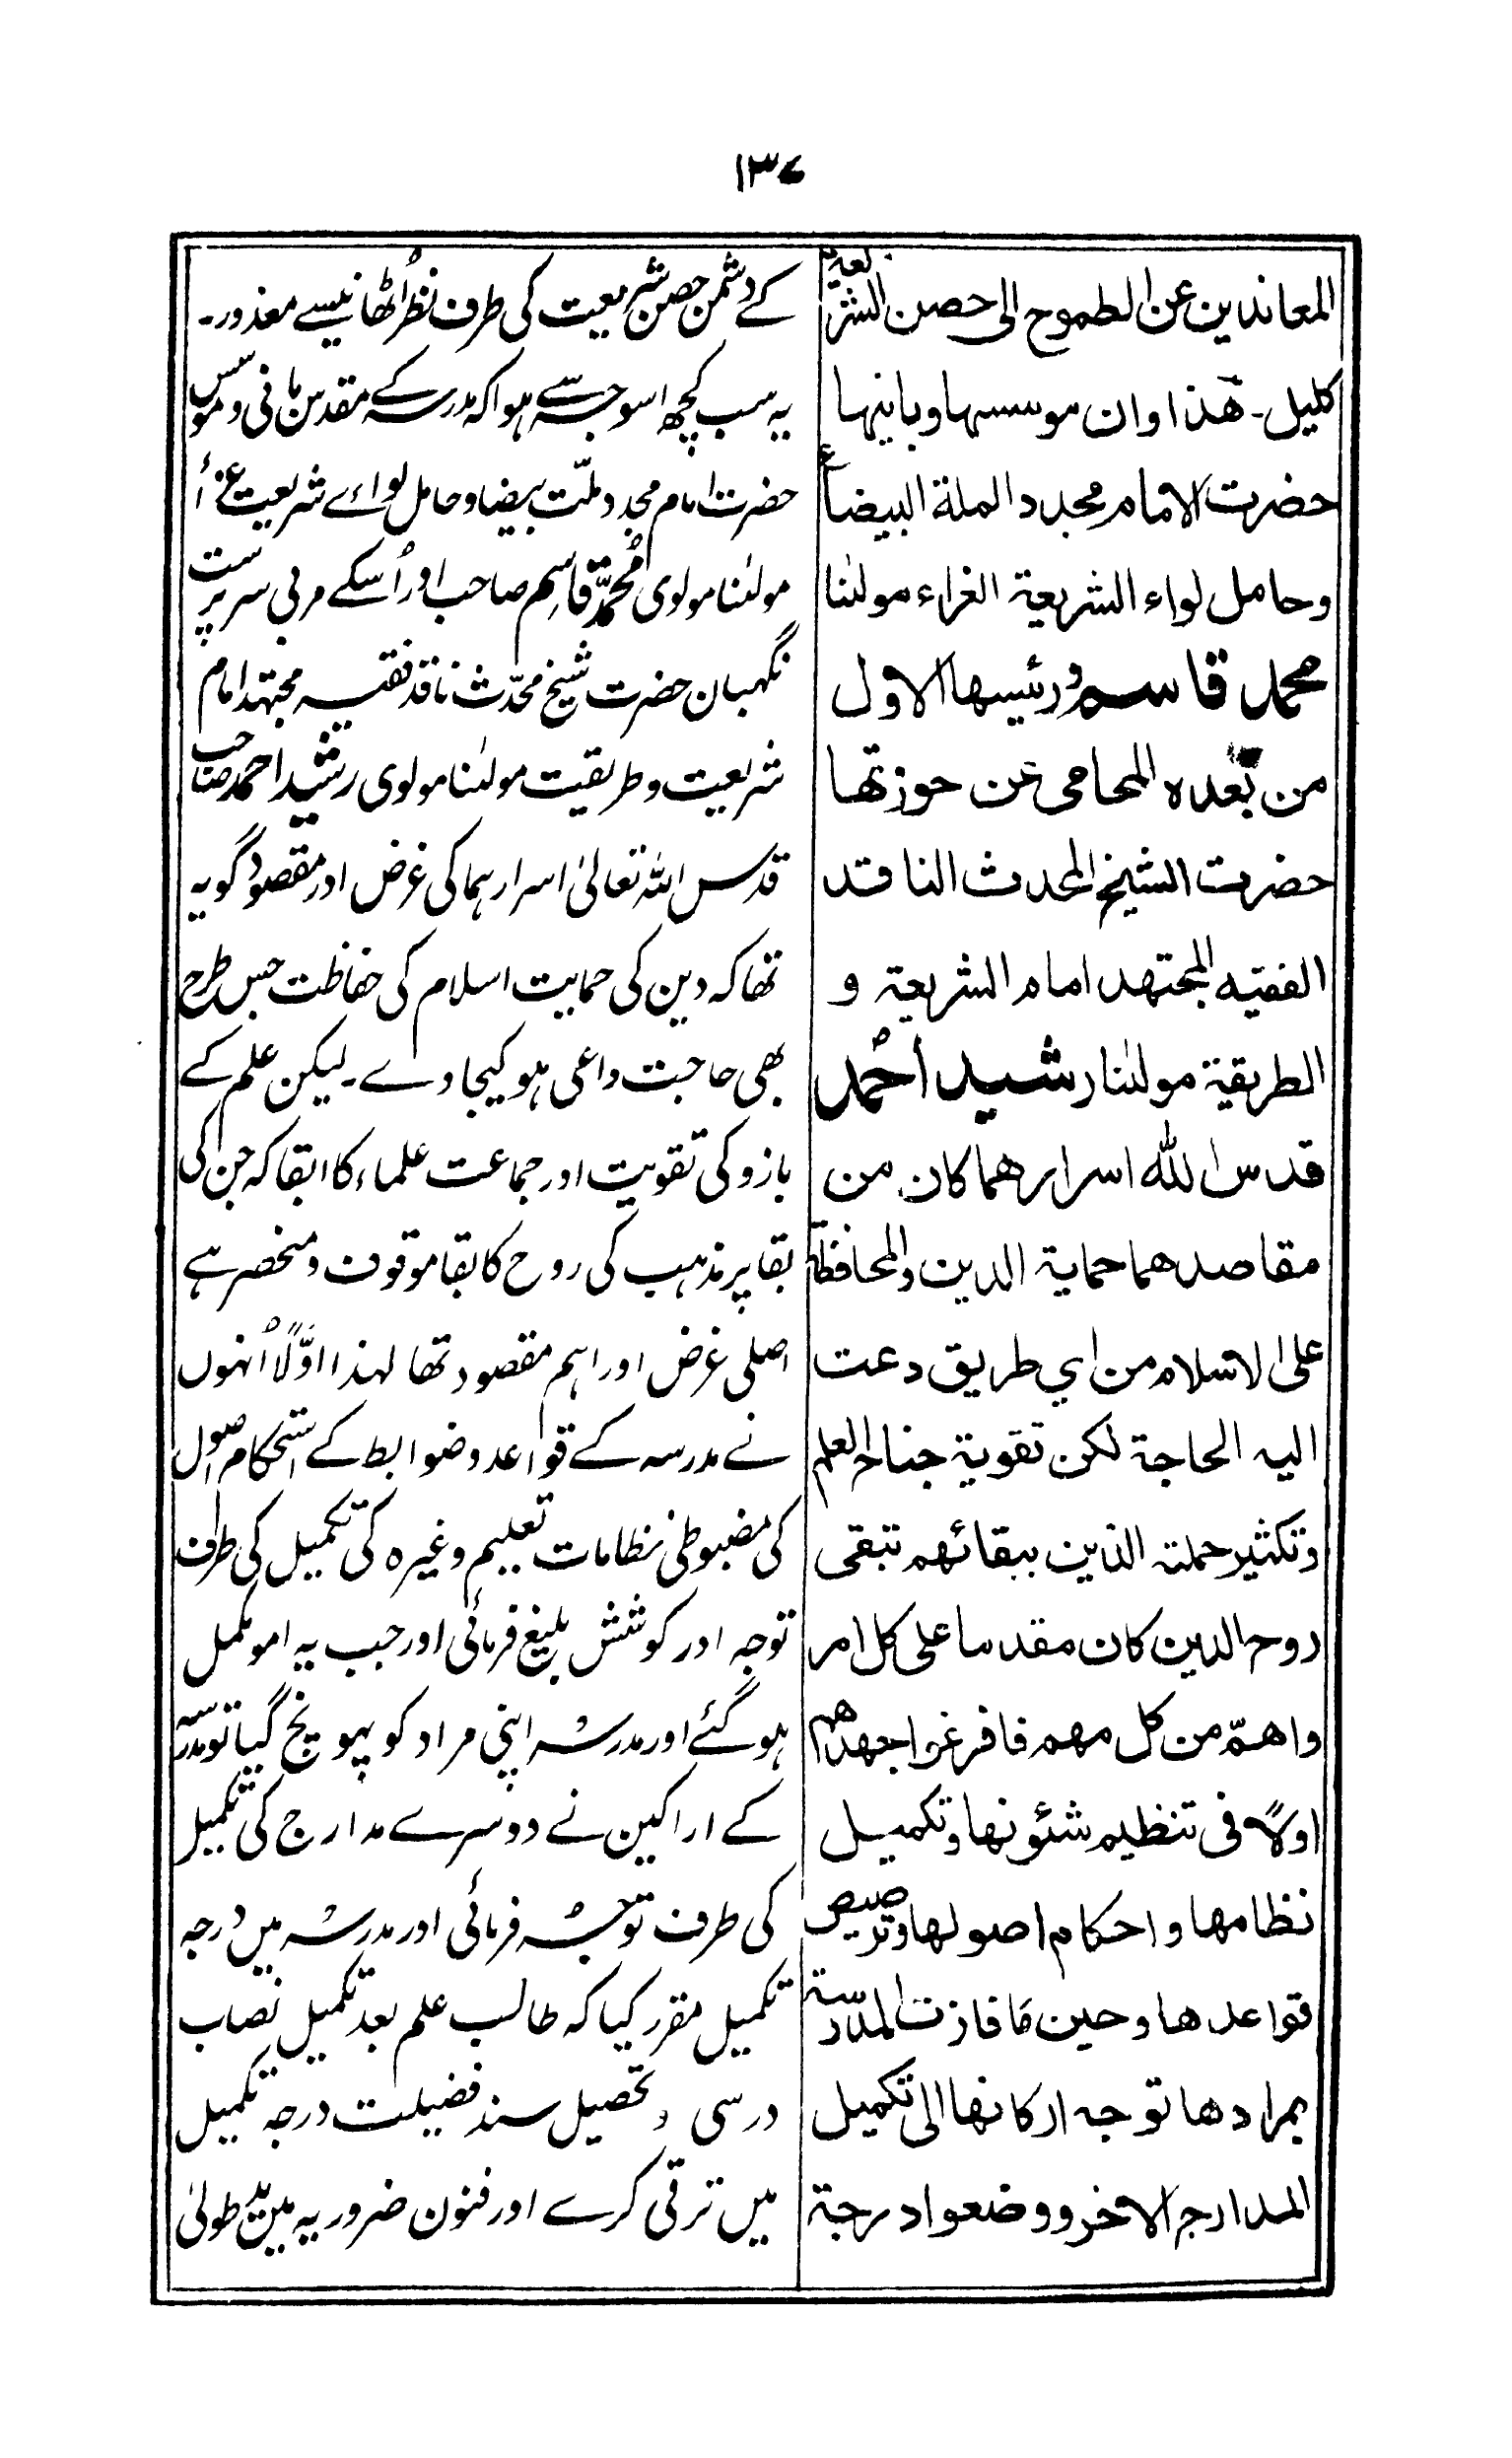 ۱۳۷
المعاندین عن الطموح الی حصن الشریعة
کلیل۔ هذا وان موسسها وبانیها
حضرت الامام مجدد الملة البیضاء
وحامل لواء الشریعة الغراء مولٰنا
محمد قاسم ورئیسها الاول
من بعده المحامی عن حوزتها
حضرت الشیخ المحدث الناقد
الفقیه المجتهد امام الشریعة و
الطریقة مولٰنا رشید أحمد
قدس الله اسرارهما کان من
مقاصدهما حمایة الدین والمحافظة
علی الاسلام من اي طریق دعت
الیه الحاجة لکن تقویة جناح العلم
وتکثیر حملته الذین ببقائهم تبقی
روح الدین کان مقدما علی کل امر
واهمّ من کل مهم فافرغوا جهدهم
اولاً فی تنظیم شئونها وتکمیل
نظامها واحکام اصولها وترصیص
قواعدها وحین ما فازت المدرسة
بمرادها توجه ارکانها الی تکمیل
المدارج الاخر ووضعوا درجة
کے دشمن حصن شریعت کی طرف نظر اُٹھانیسے معذور۔
یہ سب کچھ اسوجہ سے ہوا کہ مدرسہ کے مقدس بانی وموسس
حضرت امام مجدد ملّت بیضا وحامل لواءے شریعت غرّا
مولٰنا مولوی محمّد قاسم صاحب اور اُسکے مربی سرپرست
نگہبان حضرت شیخ محدّث ناقد فقیہ مجتہد امام
شریعت وطریقت مولٰنا مولوی رشید احمد صاحب
قدس اللہ تعالیٰ اسرارہما کی غرض اور مقصود گو یہ
تھا کہ دین کی حمایت اسلام کی حفاظت جس طرح
بھی حاجت داعی ہو کیجاوے۔ لیکن علم کے
بازو کی تقویت اور جماعت علماء کا ابقا کہ جن کی
بقا پر مذہب کی روح کا بقا موقوف ومنحصر ہے
اصلی غرض اور اہم مقصود تھا لہذا اوّلاً اُنہوں
نے مدرسہ کے قواعد وضوابط کے استحکام اصول
کی مضبوطی نظامات تعلیم وغیرہ کی تکمیل کی طرف
توجہ اور کوشش بلیغ فرمائی اور جب یہ امور مکمل
ہو گئے اور مدرسہ اپنی مراد کو پہونچ گیا تو مدرسہ
کے اراکین نے دوسرے مدارج کی تکمیل
کی طرف توجہ فرمائی اور مدرسہ میں درجہ
تکمیل مقرر کیا کہ طالب علم بعد تکمیل نصاب
درسی و تحصیل سند فضیلت درجہ تکمیل
میں ترقی کرے اور فنون ضروریہ میں ید طولیٰ